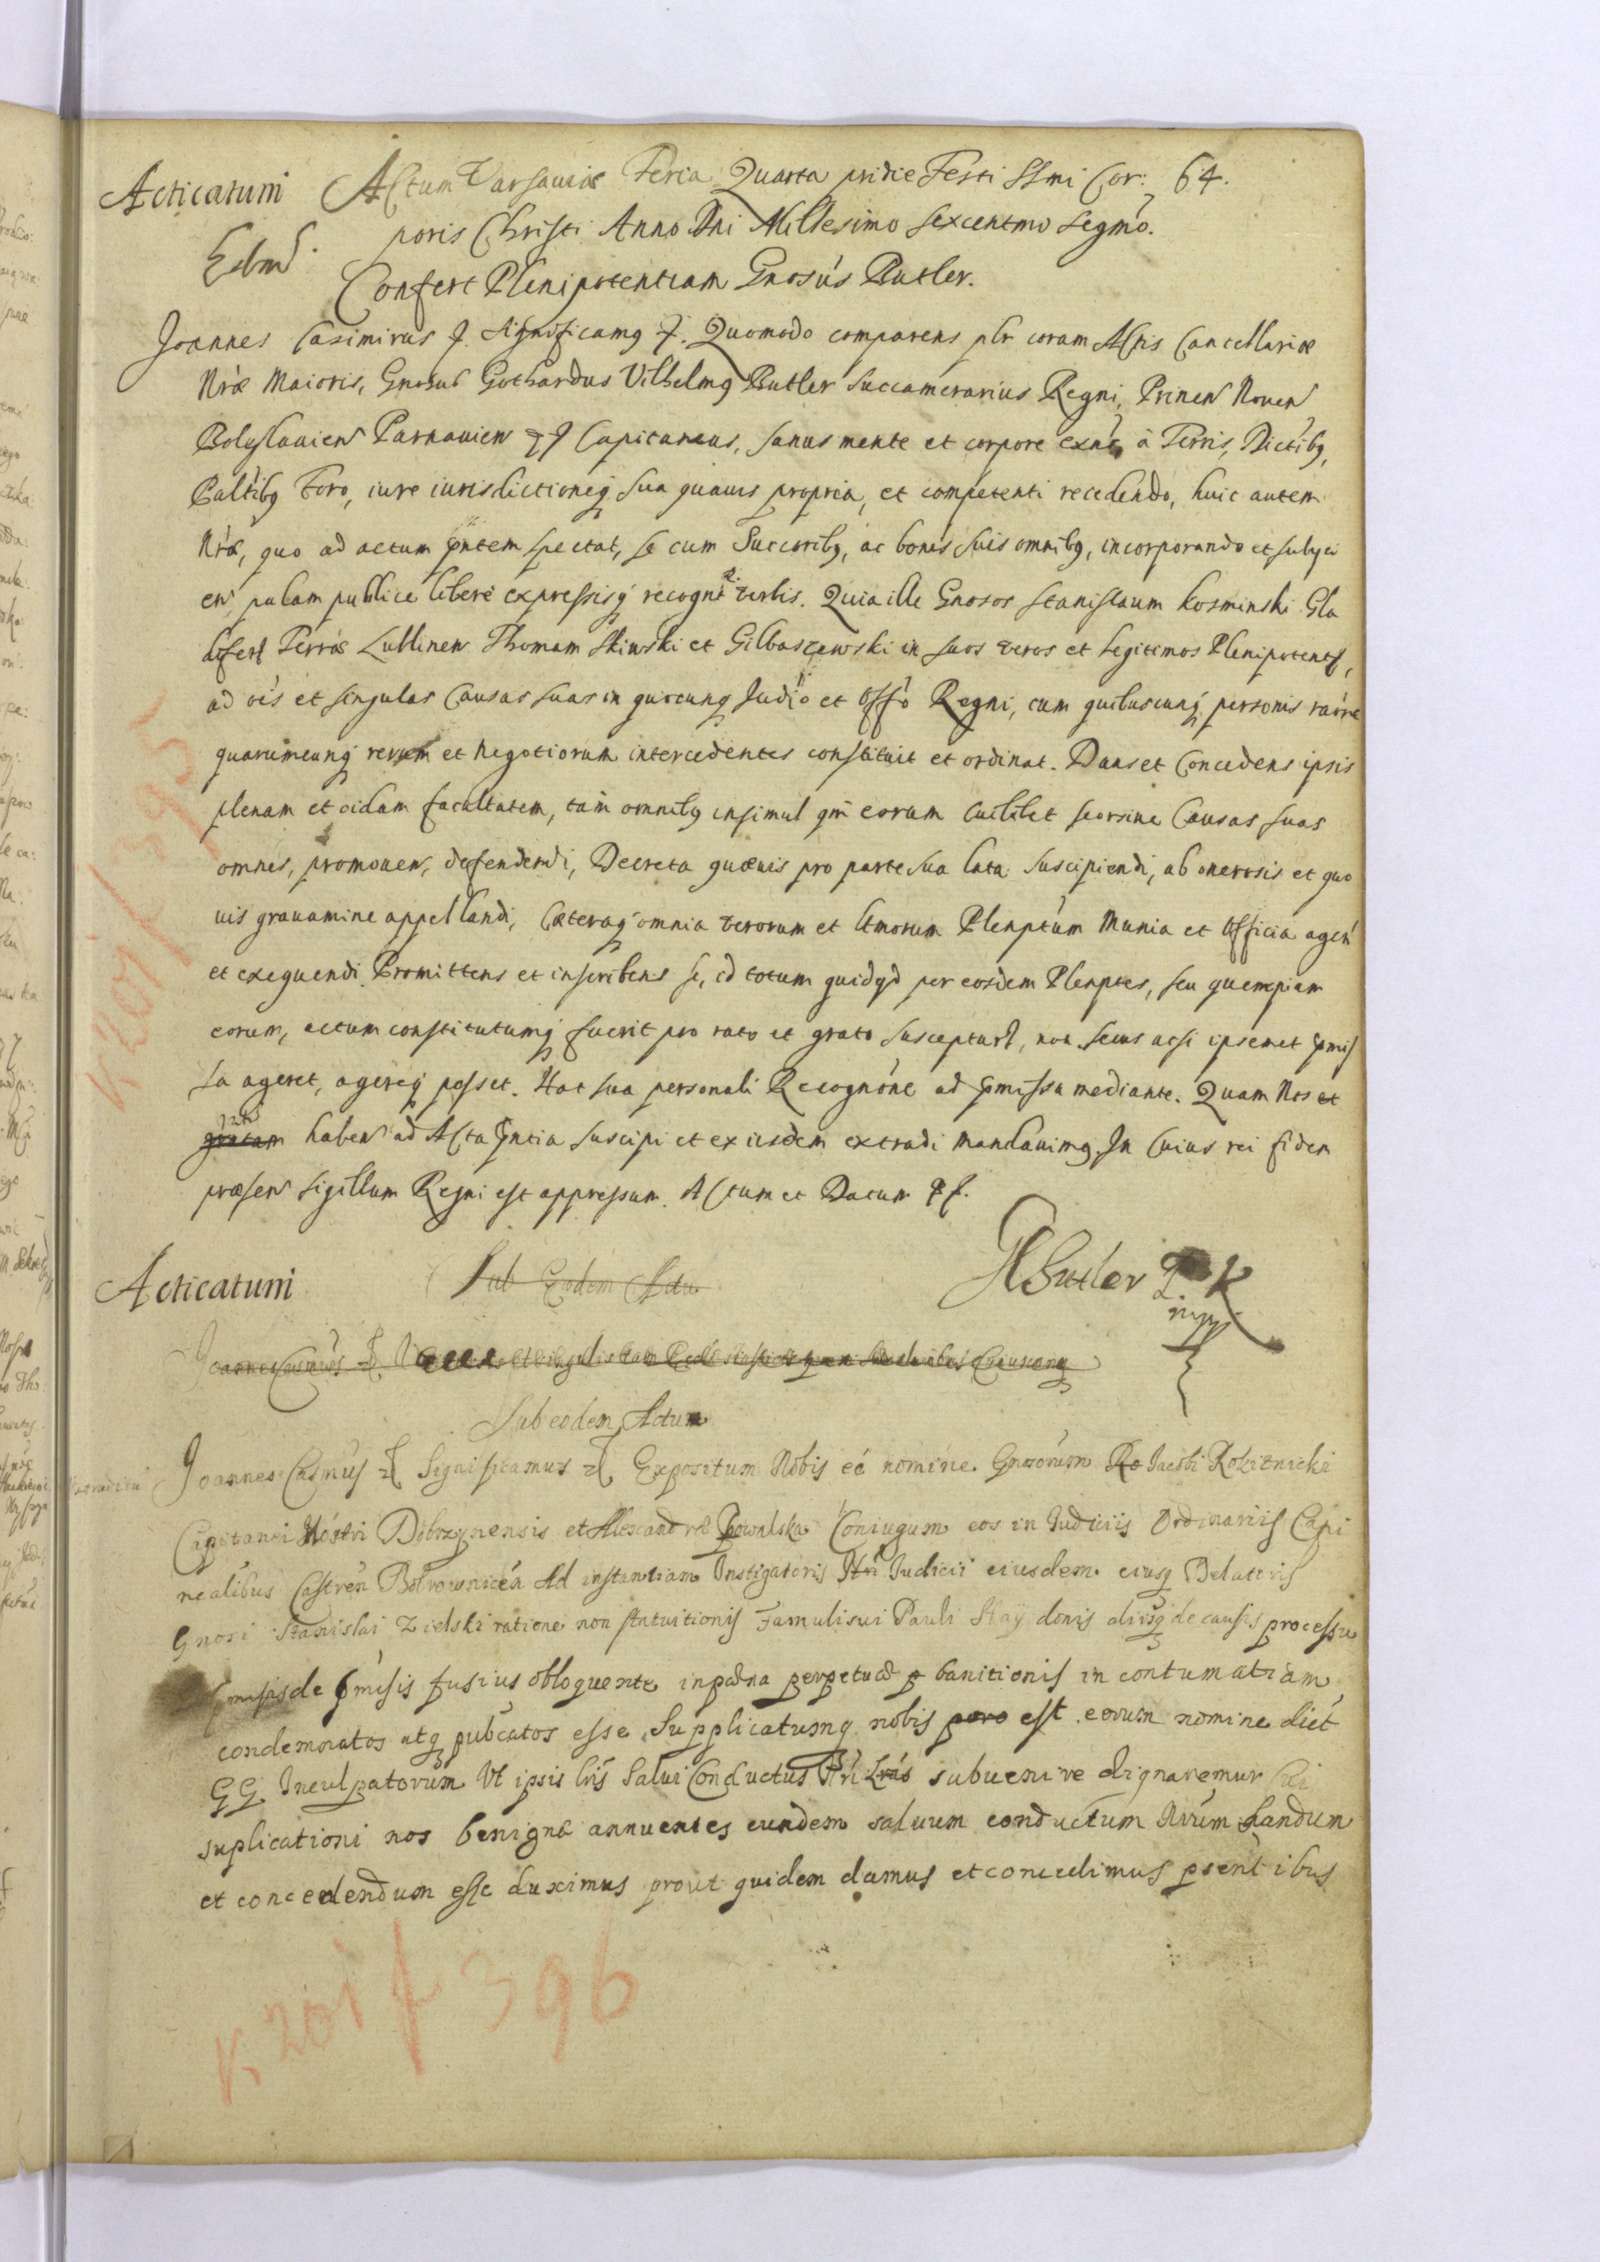 Acticatum Actum Varsaviæ Feria Quarta pridie Festi SSmi Cor: 64.
poris Christi Anno Dni Millesimo Sexcentmo Segmo.
Confert Plenipotentiam Gnosus Butler.
Joannes Casimirus Significamq Quomodo comparens plr coram Actis Cancellariæ
Nræ Maioris, Gnosus Gothardus Vilhelmq Butler Succamerarius Regni, Prinen Noven
Bolyslavien Parnavien Capitaneus, sanus mente et corpore exns à Terris, Dictibq,
Paltibq Foro, iure iurisdictioneq sua quavis propria, et competenti recedendo, huic autem
Nræ, quo ad actum pntem spectat, se cum Succoribq, ac bonis suis omnibq, incorporando et subyci
en, palam publice libere expressisq recognt verbis. Quia ille Gnosos Stanislaum Kosminski Gla
diferu Terræ Lublinen Thomam Skinski et Gilbaszewski in suos veros et legitimos Plenipotentes,
ad oes et singulas Causas suas in quocunq Judio et Offo Regni, cum quibuscunq personis raone
quarumcunq rerum et negotiorum intercedentes constituit et ordinat. Dans et Concedens ipsis
plenam et oidam facultatem, tam omnibq insimul qm eorum cuilibet seorsine Causas suas
omnes, promoven, defendendi, Decreta quævis pro parte sua lata suscipiendi, ab onerosis et quo
vis gravamine appellandi, Cæteraq omnia verorum et ltmorum Plenptum Munia et Officia agen
et exequendi. Promittens et inscribens se, id totum quidqd per eosdem Plenptes, seu quempiam
eorum, actum constitutumq fuerit pro rato et grato suscepturu, non secus acsi ipsemet pmis
sa ageret, agereq posset. Hac sua personali Recognone ad pmissa mediante. Quam Nos et
gratam haben ad Acta pntia suscipi et ex iisdem extradi mandavimq. In Cuius rei fidem
præsen Sigillum Regni est appressum. Actum et Datum
GWButler PK
mpp
Acticatum Sub Eodem Actu
Sub eodem Actum
Joannes Casmus Significamus Expositum Nobis eé nomine Gnosorum Jacobi Kokitnicki
Capitanei Nostri Dobrzynensis et Alexandræ Powalska Coniugum eos in Judiciis Ordinariis Capi
nealibus Castren Bobrownicen Ad instantiam Instigatoris Judicii eiusdem eiusq Delatoris
Gnosi Stanislai Zielski ratione non stntuitionis Famuli sui Pauli Slay donis aliisq de causis processu
de pmisis fusius obloquente in pæna perpetuæ banitionis in contumatiam
condemnatos atq pubcatos esse Supplicatumq nobis est eorum nomine dict
GG Inculpatorum Ut ipsis lris Salvi Conductus Nri subvenire dignaremur Cui
suplicationi nos benigne annuentes eundem salvum conductum Nrum dandum
et concedendum esse duximus prout quidem damus et concedimus psentibus
K 201 f 395
K 201 f 396